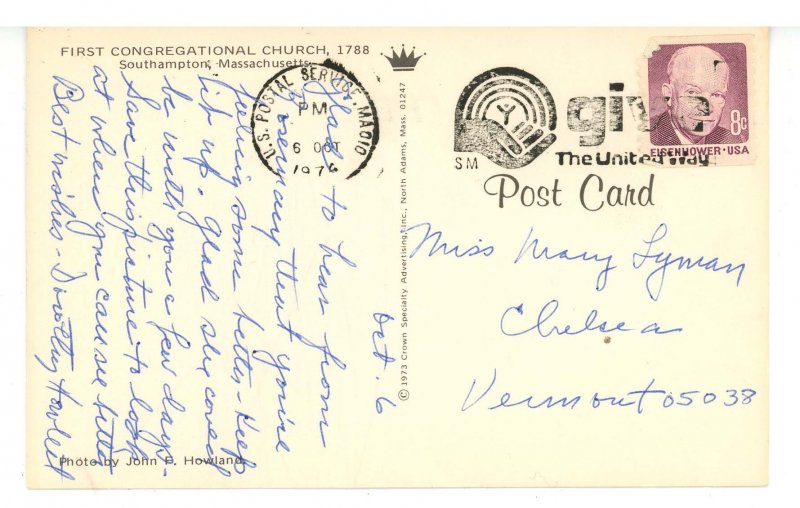 FIRST CONGREGATIONAL CHURCH, 1788
Southampton, Massachusetts
U.S. POSTAL SERVICE, MA010
PM
6 OCT
1974
SM
give
The United Way
8c
EISENHOWER · USA
Post Card
© 1973 Crown Specialty Advertising, Inc., North Adams, Mass. 01247
Oct. 6
Glad to hear from
Rosemary that you're
feeling some better, Keep
it up. Glad she could
be with you a few days.
Save this picture to look
at when you can see better
Best wishes - Dorothy Howlet
Miss Mary Lyman
Chelsea
Vermont 05038
Photo by John P. Howland